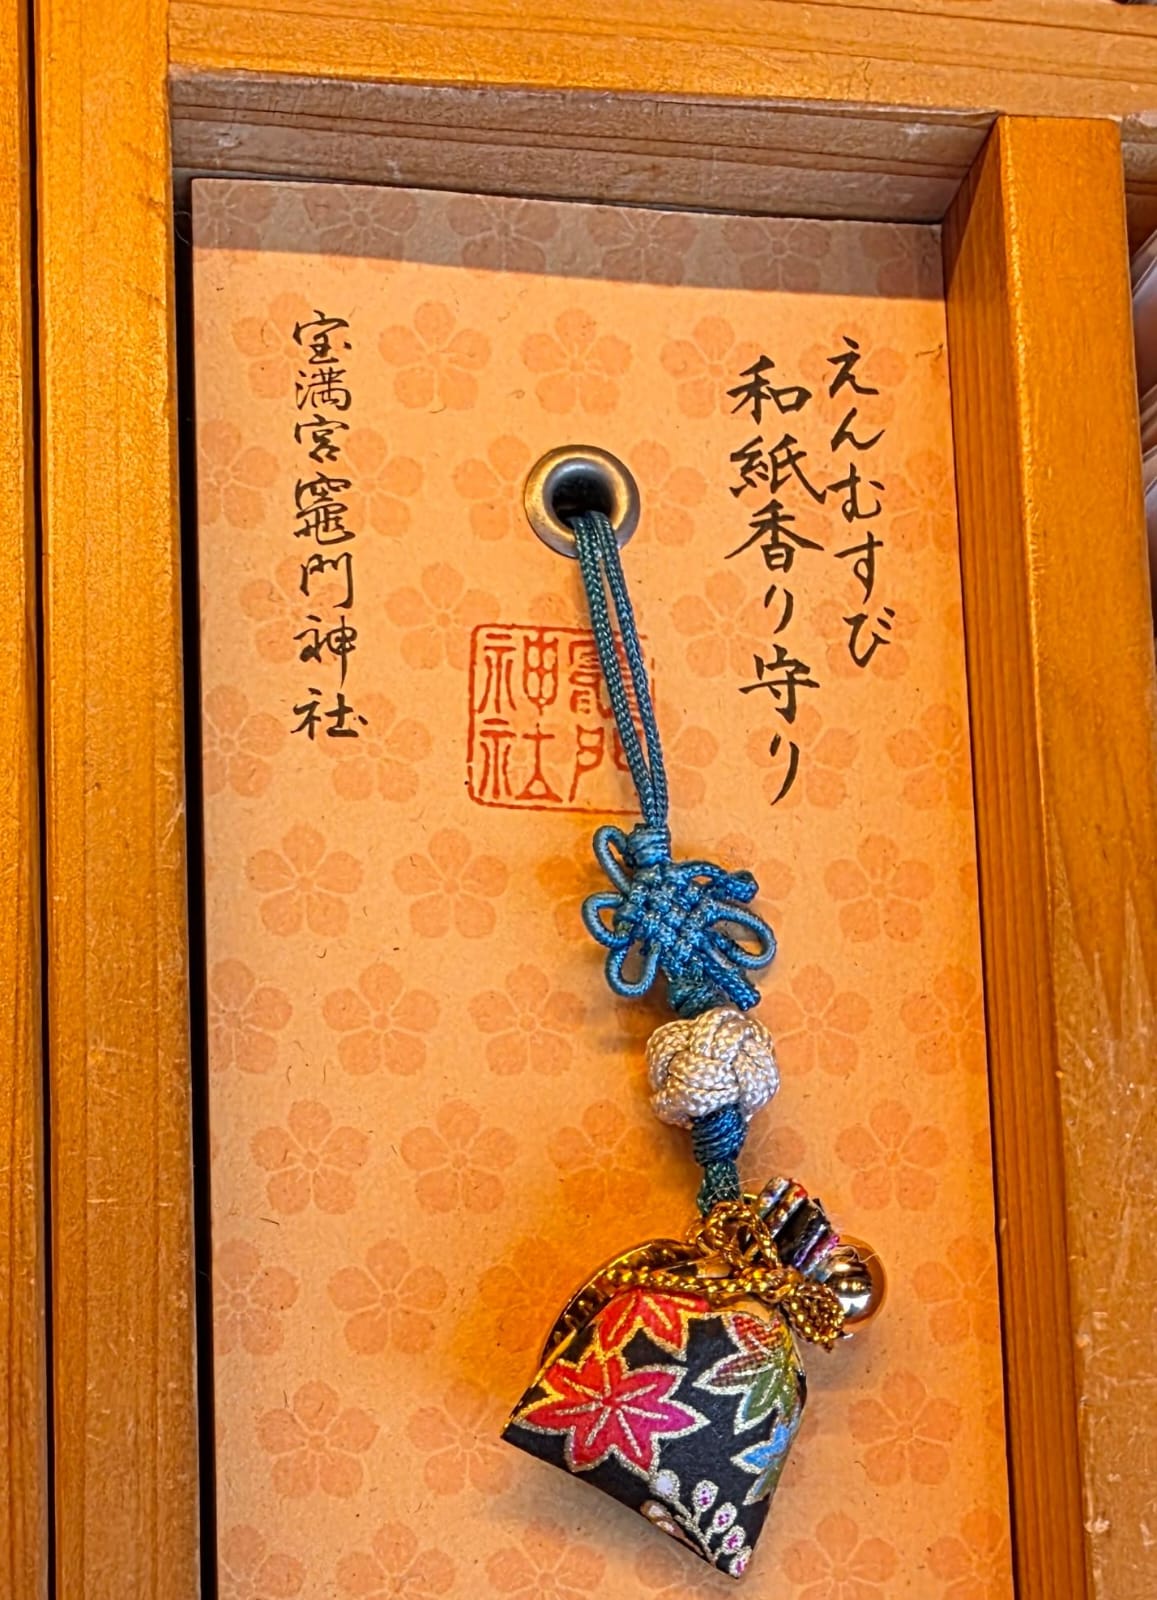 えんむすび
和紙香り守り
竈門
神社
宝満宮竈門神社